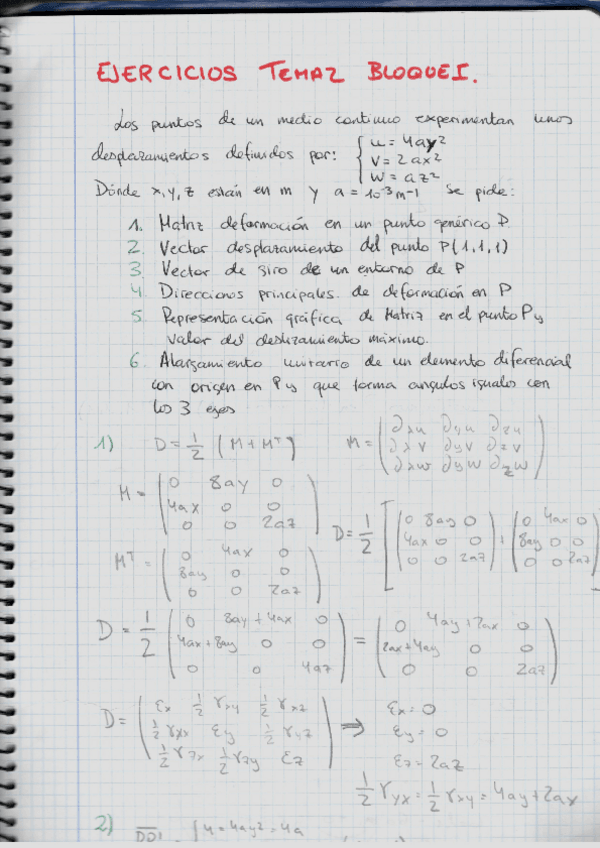 EJERCICIOS TEMA2 BLOQUE I.
Los puntos de un medio continuo experimentan unos
desplazamientos definidos por: { u = 4ay²
v = 2ax²
w = az²
Dónde x, y, z están en m y a = 10⁻³m⁻¹ se pide:
1. Matriz deformación en un punto genérico P
2. Vector desplazamiento del punto P(1,1,1)
3 Vector de giro de un entorno de P
4 Direcciones principales de deformación en P
5. Representación gráfica de Matriz en el punto P y
valor del deslizamiento máximo.
6. Alargamiento unitario de un elemento diferencial
con origen en P y que forma angulos iguales con
los 3 ejes
1) D = 1/2 (M + Mᵀ) M = ( ∂xu ∂yu ∂zu
∂xv ∂yv ∂zv
∂xw ∂yw ∂zw )
M = ( 0 8ay 0
4ax 0 0
0 0 2az )
D = 1/2 [ ( 0 8ay 0
4ax 0 0
0 0 2az ) + ( 0 4ax 0
8ay 0 0
0 0 2az )
Mᵀ = ( 0 4ax 0
8ay 0 0
0 0 2az )
D = 1/2 ( 0 8ay + 4ax 0
4ax + 8ay 0 0
0 0 4az ) = ( 0 4ay + 2ax 0
2ax + 4ay 0 0
0 0 2az )
D = ( εx 1/2 γxy 1/2 γxz
1/2 γyx εy 1/2 γyz
1/2 γzx 1/2 γzy εz ) ⇒ εx = 0
εy = 0
εz = 2az
1/2 γyx = 1/2 γxy = 4ay + 2ax
2) { u = 4ay² = 4a